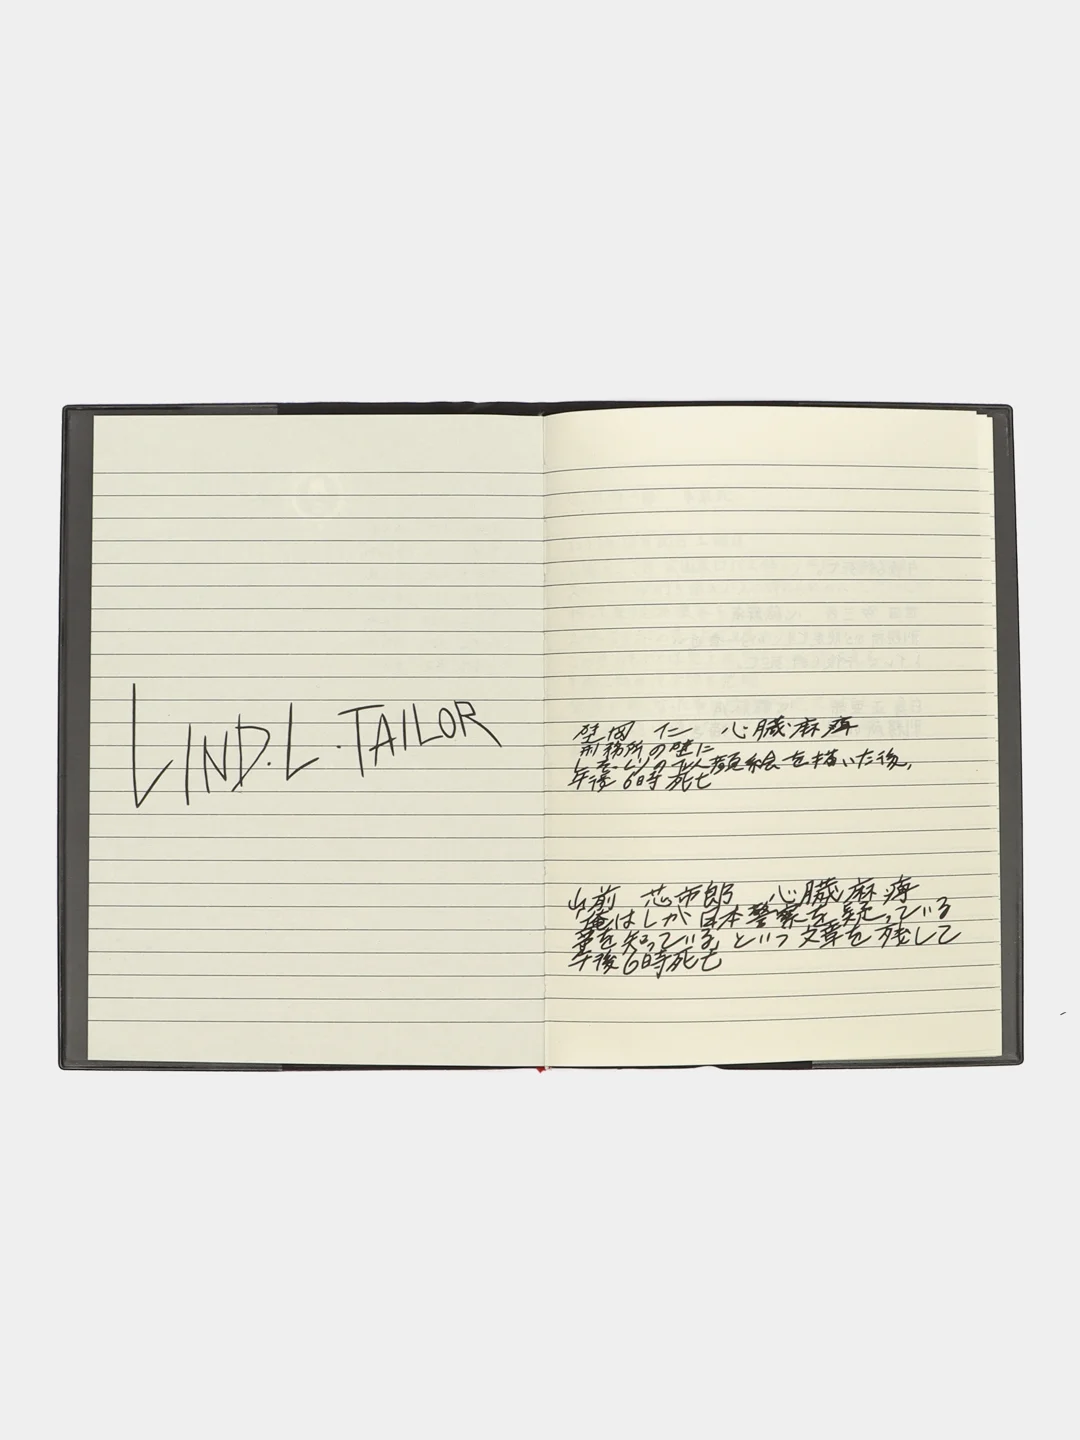 LIND.L.TAILOR
岡 仁 心臓麻痺
刑務所の壁に
似顔絵を描いた後、
午後6時死亡
山前 芯市郎 心臓麻痺
「俺はLが日本警察を疑っている
事を知っている」という文章を残して
午後6時死亡